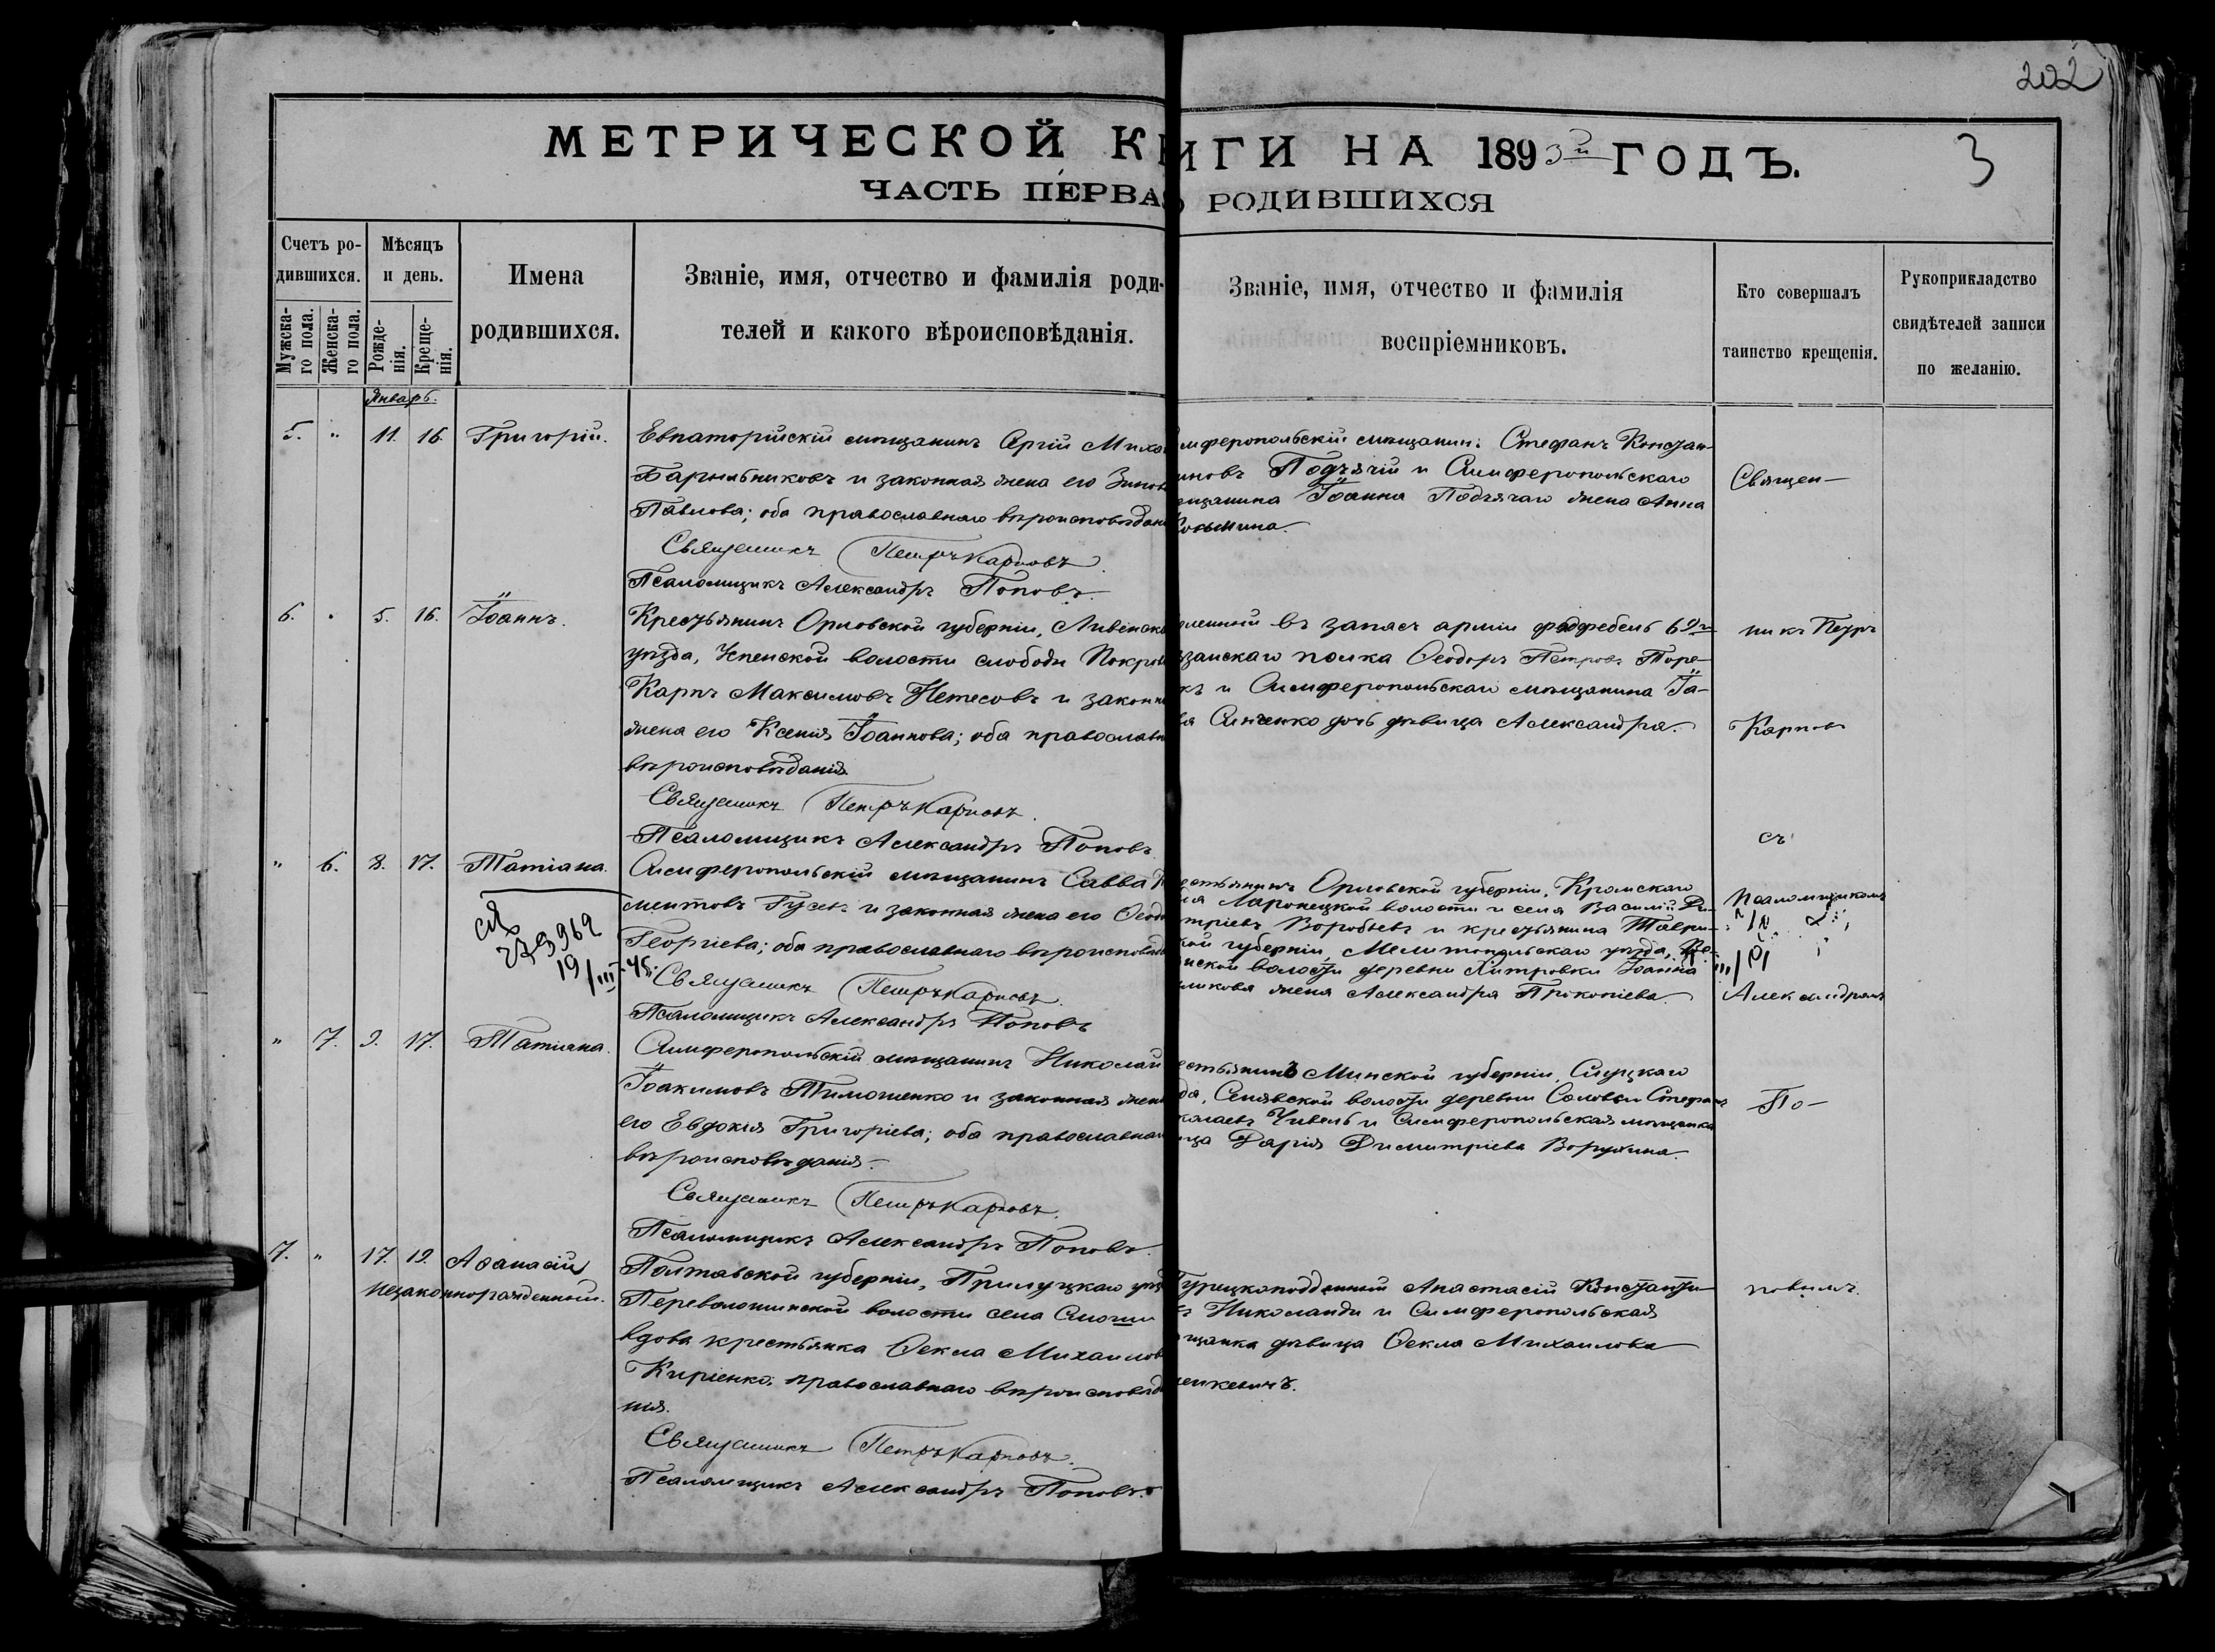 202
МЕТРИЧЕСКОЙ КНИГИ НА 1893й ГОДЪ.
3
ЧАСТЬ ПЕРВАЯ О РОДИВШИХСЯ
Счетъ ро-
дившихся.
Мужска-
го пола.
Женска-
го пола.
Мѣсяцъ
и день.
Рожде-
нія.
Креще-
нія.
Имена
родившихся.
Званіе, имя, отчество и фамилія роди-
телей и какого вѣроисповѣданія.
Званіе, имя, отчество и фамилія
воспріемниковъ.
Кто совершалъ
таинство крещенія.
Рукоприкладство
свидѣтелей записи
по желанію.
Январь.
5. " 11. 16. Григорій.
Евпаторійскій мѣщанинъ Сергій Миха
и законная жена его Зинов
Павлова; оба православнаго вѣроисповѣдан
Священникъ Петръ Карповъ.
Псаломщикъ Александръ Поповъ.
мферопольскій мѣщанинъ Стефанъ Констан-
иновъ Подъячій и Симферопольскаго
ѣщанина Іоанна Подъячаго жена Анна
Косьмина.
Священ-
6. " 5. 16. Іоаннъ.
Крестьянинъ Орловской губерніи, Ливенска
уѣзда, Успенской волости слободы Покров
Карпъ Максимовъ Нетесовъ и законн
жена его Ксенія Іоаннова; оба православн
вѣроисповѣданія.
Священникъ Петръ Карповъ.
Псаломщикъ Александръ Поповъ.
въ запасъ арміи фельдфебель 6го
занскаго полка Ѳеодоръ Петровъ
къ и Симферопольскаго мѣщанина
дочь дѣвица Александра.
никъ Петръ
Карповъ
съ
" 6. 8. 17. Татіана.
Симферопольскій мѣщанинъ Савва
ментовъ Гусевъ и законная жена его Ѳеод
Георгіева; оба православнаго вѣроисповѣд
Священникъ Петръ Карповъ.
Псаломщикъ Александръ Поповъ
19/III 45.
естьянинъ Орловской губерніи, Кромскаго
волости и села Василій Ди-
тріевъ Воробьевъ и крестьянина Таври-
кой губерніи, Мелитопольскаго уѣзда,
нской волости деревни Хитровки Іоанна
ликова жена Александра Прокопіева
псаломщикомъ
Александромъ
" 7. 9. 17. Татіана.
Симферопольскій мѣщанинъ Николай
Іоакимовъ Тимошенко и законная жена
его Евдокія Григоріева; оба православнаго
вѣроисповѣданія.
Священникъ Петръ Карповъ.
Псаломщикъ Александръ Поповъ.
естьянинъ Минской губерніи, Слуцкаго
да, волости деревни Стефанъ
колаевъ и Симферопольская мѣщанка
ица Дарія Димитріева
По-
7. " 17. 19. Аѳанасій
незаконнорожденный.
Полтавской губерніи, Прилуцкаго уѣзд
Переволочинской волости села
вдова крестьянка Ѳекла Михаилов
Киріенко, православнаго вѣроисповѣд
нія.
Священникъ Петръ Карповъ.
Псаломщикъ Александръ Поповъ.
Турецкоподданный Анастасій Константи-
въ Николаиди и Симферопольская
щанка дѣвица Ѳекла Михаилова
повымъ.